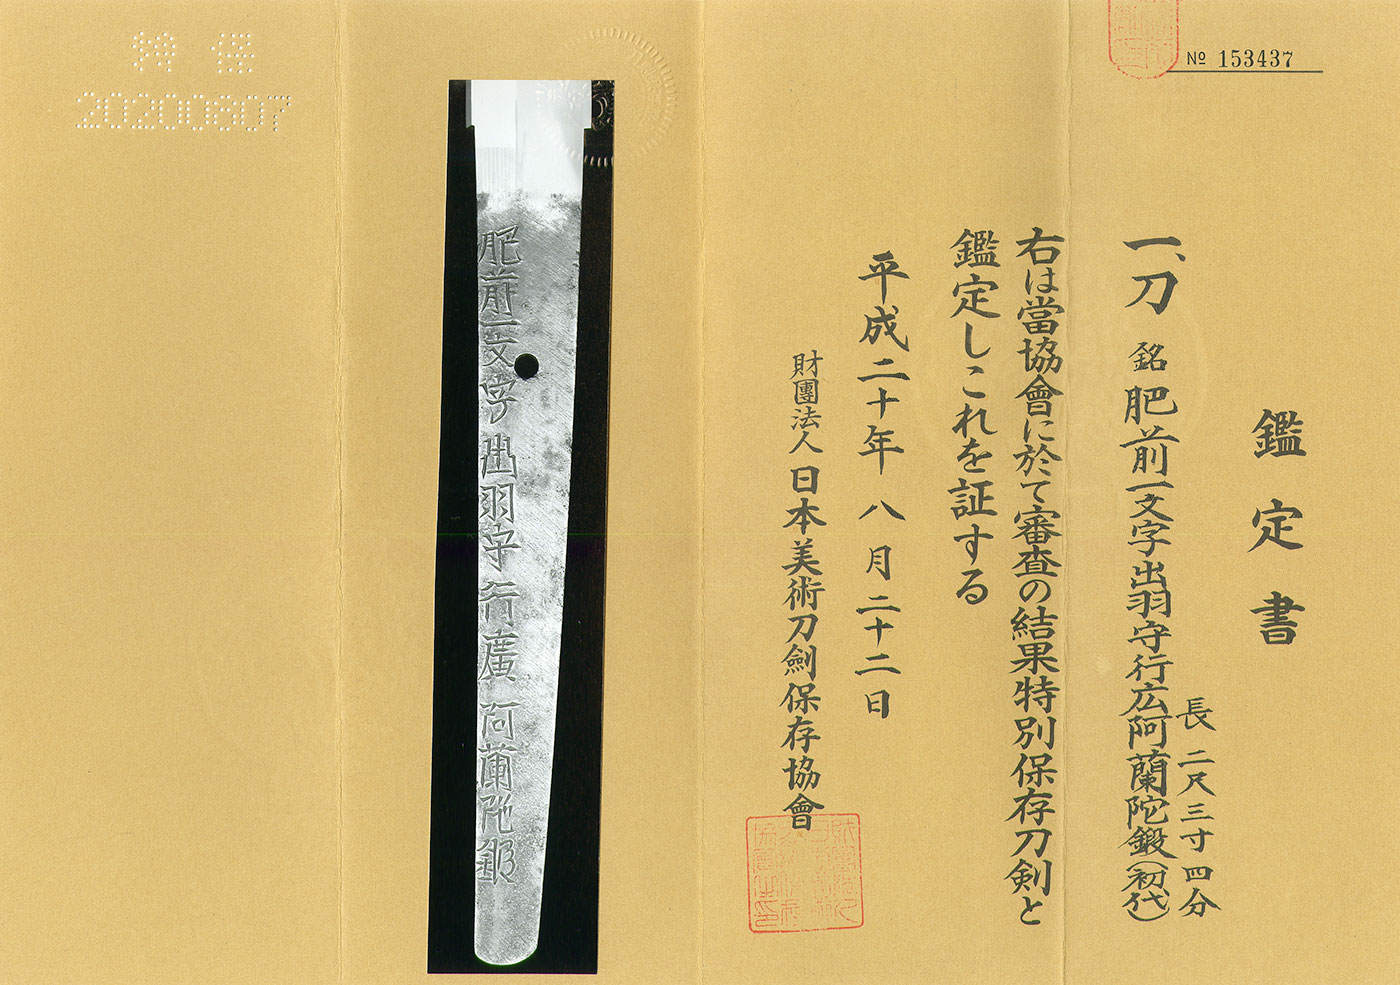 № 153437
鑑定書
一、刀 銘 肥前一文字出羽守行広阿蘭陀鍛(初代)
長 二尺三寸四分
右は當協會に於て審査の結果特別保存刀剣と
鑑定しこれを証する
平成二十年 八月二十二日
財團法人 日本美術刀劍保存協會
肥前一文字出羽守行廣
阿蘭陀鍛
特 保
20200807